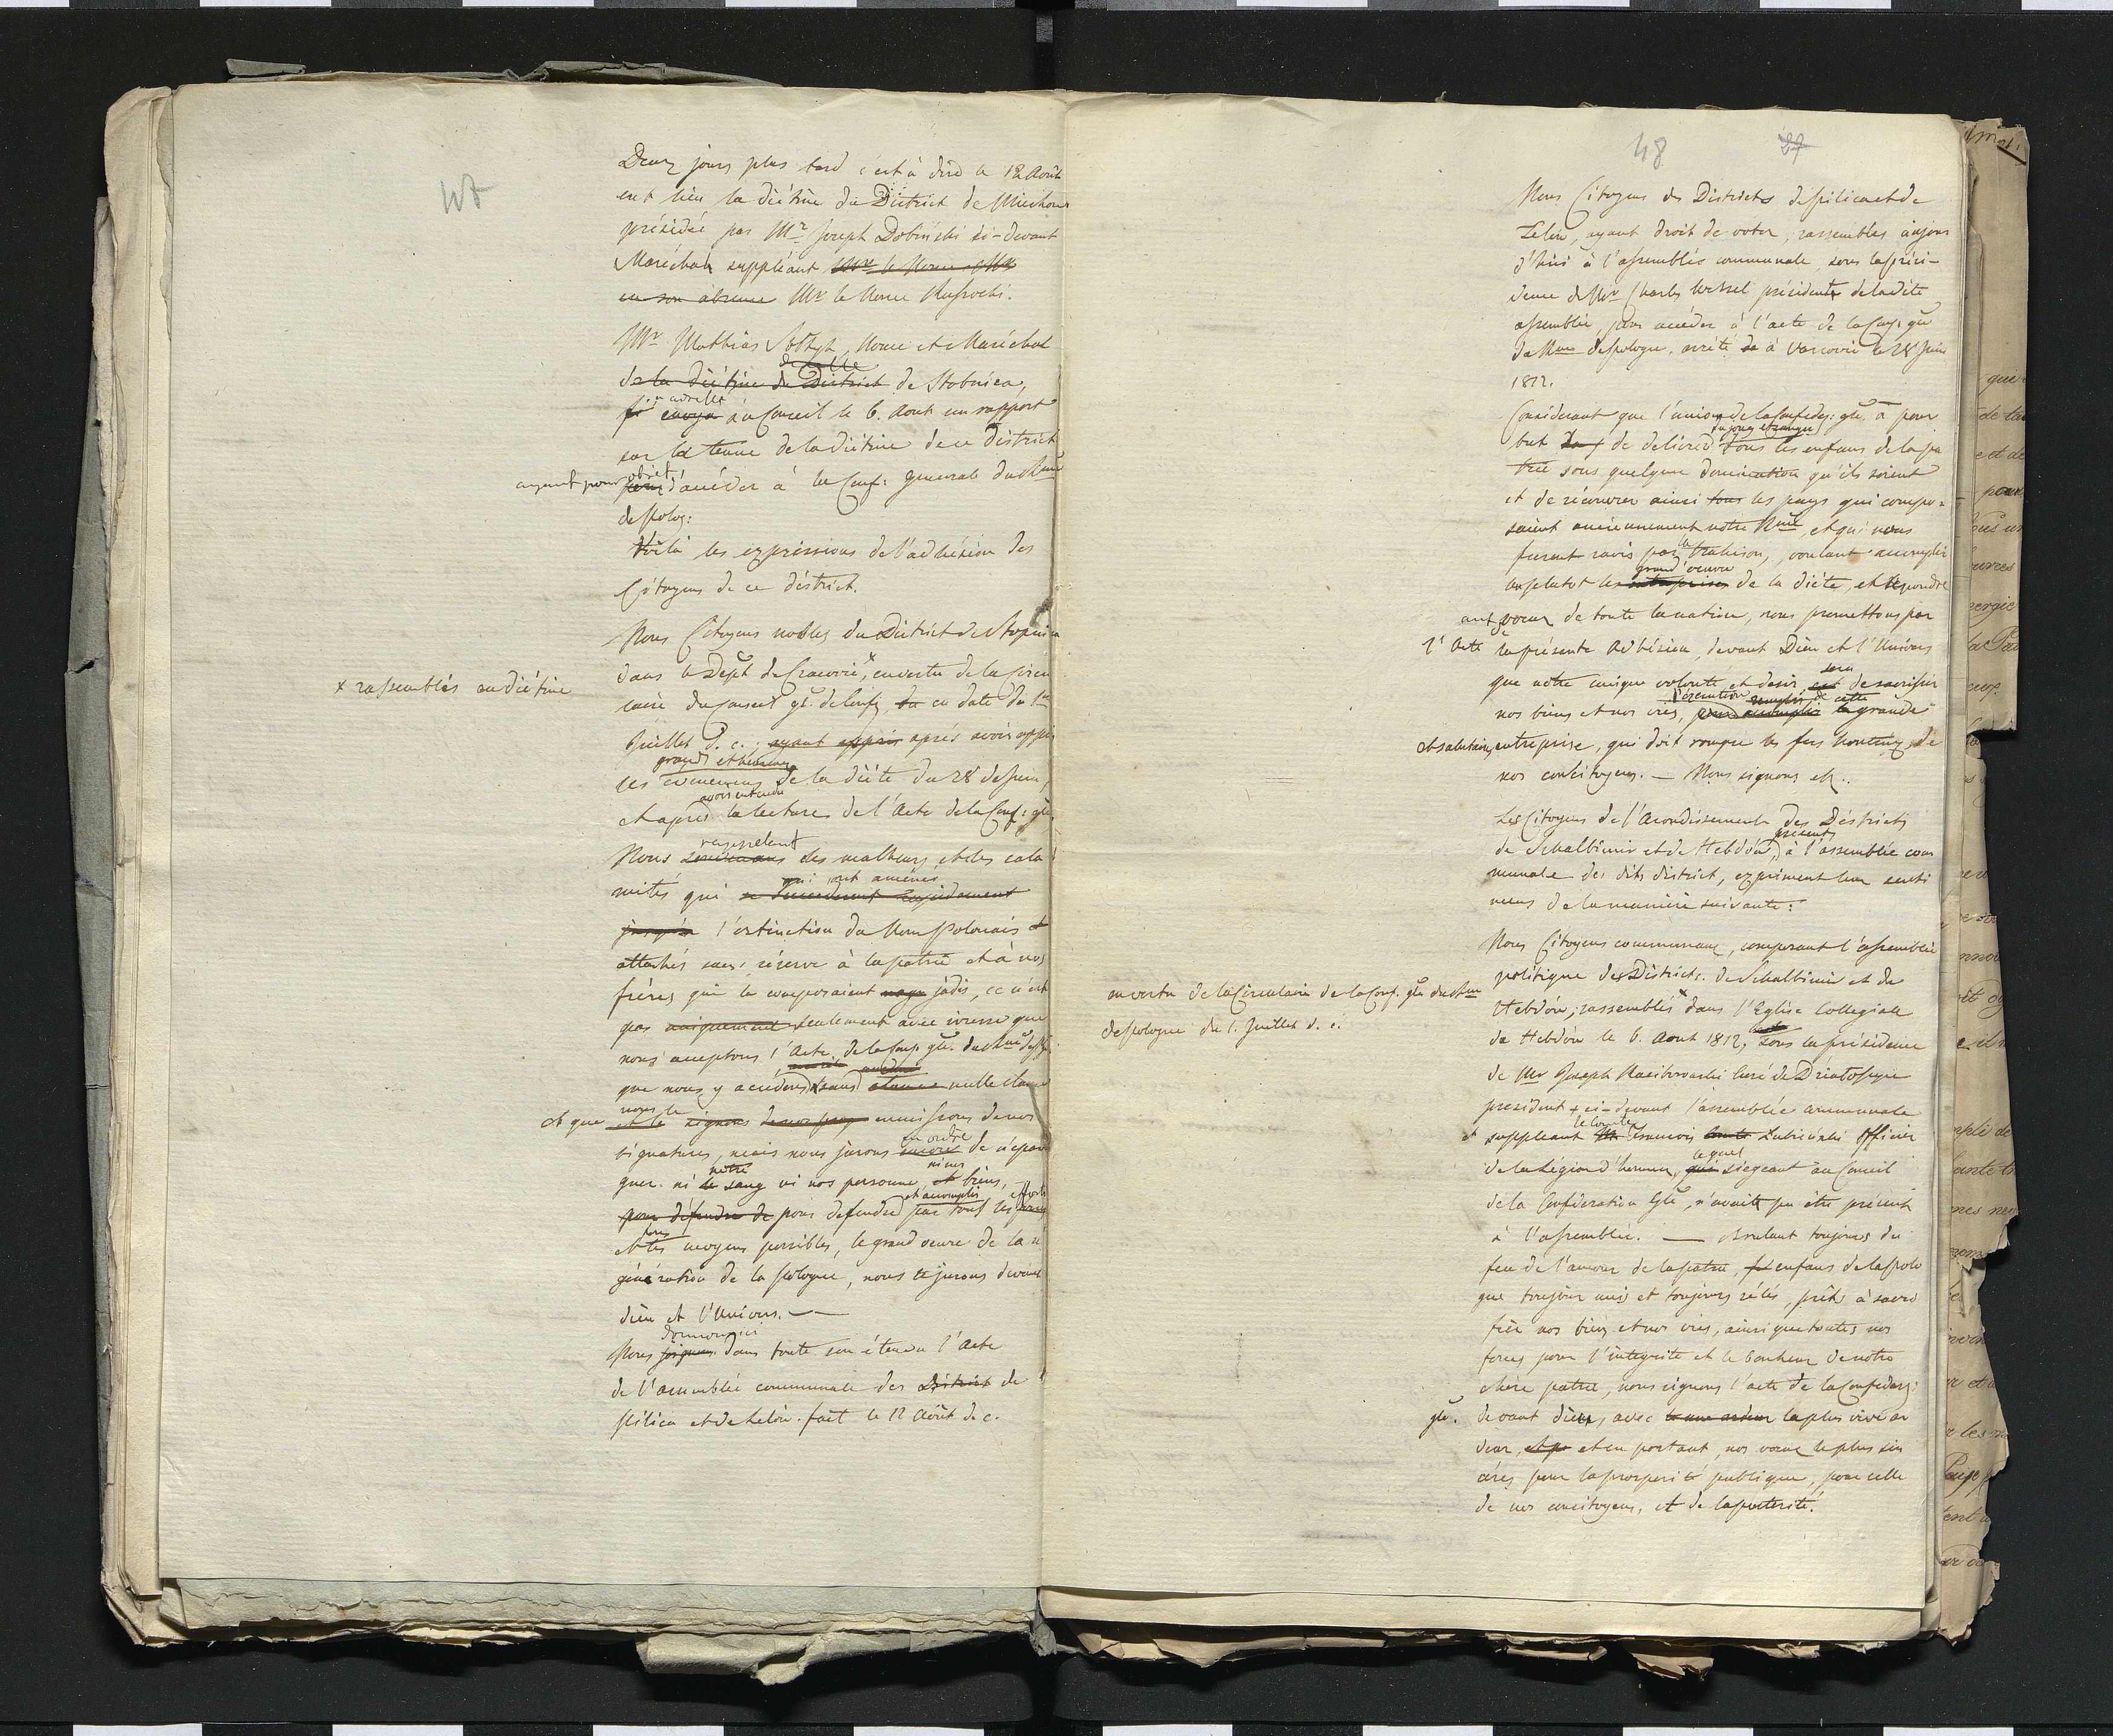 Deux jours plus tard c'est à dire le 12 Août
eut lieu la diétine du District de Miechow
présidée par Mr Joseph Dobiński ci-devant
Maréchal suppléant
en son absence Mr le Nonce
Mr Mathias Sołtyk, Nonce et Maréchal
de celle
de la diétine du District de Stobnica,
adressa
envoya au Conseil le 6. Aout un rapport
sur la tenue de la diétine de ce district
ayant pour objet
pour d'accéder à la Conf: generale du Rme
de Polog:
Voilà les expressions de l'adhésion des
Citoyens de ce district.
Nous Citoyens nobles du District de Stopnica
dans le Dépt de Cracovie, x en vertu de la Circu
x rassemblés en diétine
laire du Conseil gl. de Conf, du en date du 1er
Juillet d. c., ayant appris après avoir appris
grands et heureux
les évenemens de la diète du 28 de Juin,
avoir entendu
et après la lecture de l'Acte de la Conf: gle
rappelant
Nous les malheurs et les cala
qui ont amenés
mités qui se succederent rapidement
jusqu'à l'extinction du Nom Polonais et
attachés sans réserve à la patrie et à nos
frères qui la composaient jadis, ce n'est
pas uniquement seulement avec ivresse que
nous acceptons l'Acte de la Conf. gle. du Rme de Po
que nous y accédons sans nulle
et que nous le signons de nos
signatures, mais nous jurons encore de n'épar
en outre
notre ni nos
gner ni le sang ni nos personne, et biens,
et accomplir efforts
pour défendre de pour defendre par tous les
tous
et les moyens possibles, le grand oeuvre de la ré
génération de la Pologne, nous le jurons devant
dieu et l'Univers. —
donnons ici
Nous joignons dans toute son étendu l'Acte
de l'assemblée communale des District de
Pilica et de Lelów. fait le 12 Août d. c.
48
27
Nous Citoyens des Districts de Pilica et de
Lelow, ayant droit de voter, rassemblés aujour
d'hui à l'assemblée communale, sous la prési-
dence de Mr Charles Wessel président de la dite
assemblée, pour accéder à l'acte de la Conf: gle
du Rme de Pologne, arrêté à Varsovie le 28 Juin
1812.
Considerant que l'union de la Confedg: gle. a pour
du joug étranger
but de délivrer tous les enfans de la pa
trie sous quelque domination qu'ils soient
et de récouvrer ainsi tous les pays qui compo-
saient anciennement notre Rme, et qui nous
la
furent ravis par trahison, voulant accomplir
grand oeuvre
au plutot les entreprises de la diète, et répondre
aux voeux de toute la nation, nous promettons par
l'Acte de la présente Adhésion, devant Dieu et l'Univers
sera
que notre unique volonté et desir est de sacrifier
l'exécution de cette
nos biens et nos vies, pour accomplir la grande
et salutaire entreprise, qui doit rompre les fers honteux de
nos concitoyens. — Nous signons etc.
Les Citoyens de l'Arondissement des Districts
présents
de Skalbimir et de Hebdów, à l'assemblée com
munale des dits district, expriment leur senti
mens de la manière suivante:
Nous Citoyens communaux, composant l'assemblée
politique des Districts de Skalbimir et de
Hebdów, rassemblés x dans l'Eglise Collegiale
en vertu de la Circulaire de la Conf. gle du Rme
de Pologne du 1. Juillet d. c.
de Hebdów le 6. Aout 1812, sous la présidence
de Mr Joseph Raciborowski Curé de
president ci-devant l'assemblée communale
le Comte
et suppleant Mr François Comte Łubieński Officier
lequel
de la Légion d'honneur, qui siegeant au Conseil
de la Confédération Gle, n'avait pu être présent
à l'assemblée. — Brulant toujours du
feu de l'amour de la patrie, enfans de la Polo
gne toujours unis et toujours zélés, prêts à sacri
fier nos biens et nos vies, ainsi que toutes nos
forces pour l'integrité et le bonheur de notre
chère patrie, nous signons l'acte de la Confederg:
gle. devant dieu, avec la plus vive ar
deur, et en portant nos voeux le plus sin
cères pour la prosperité publique, pour celle
de nos concitoyens, et de la posterité.